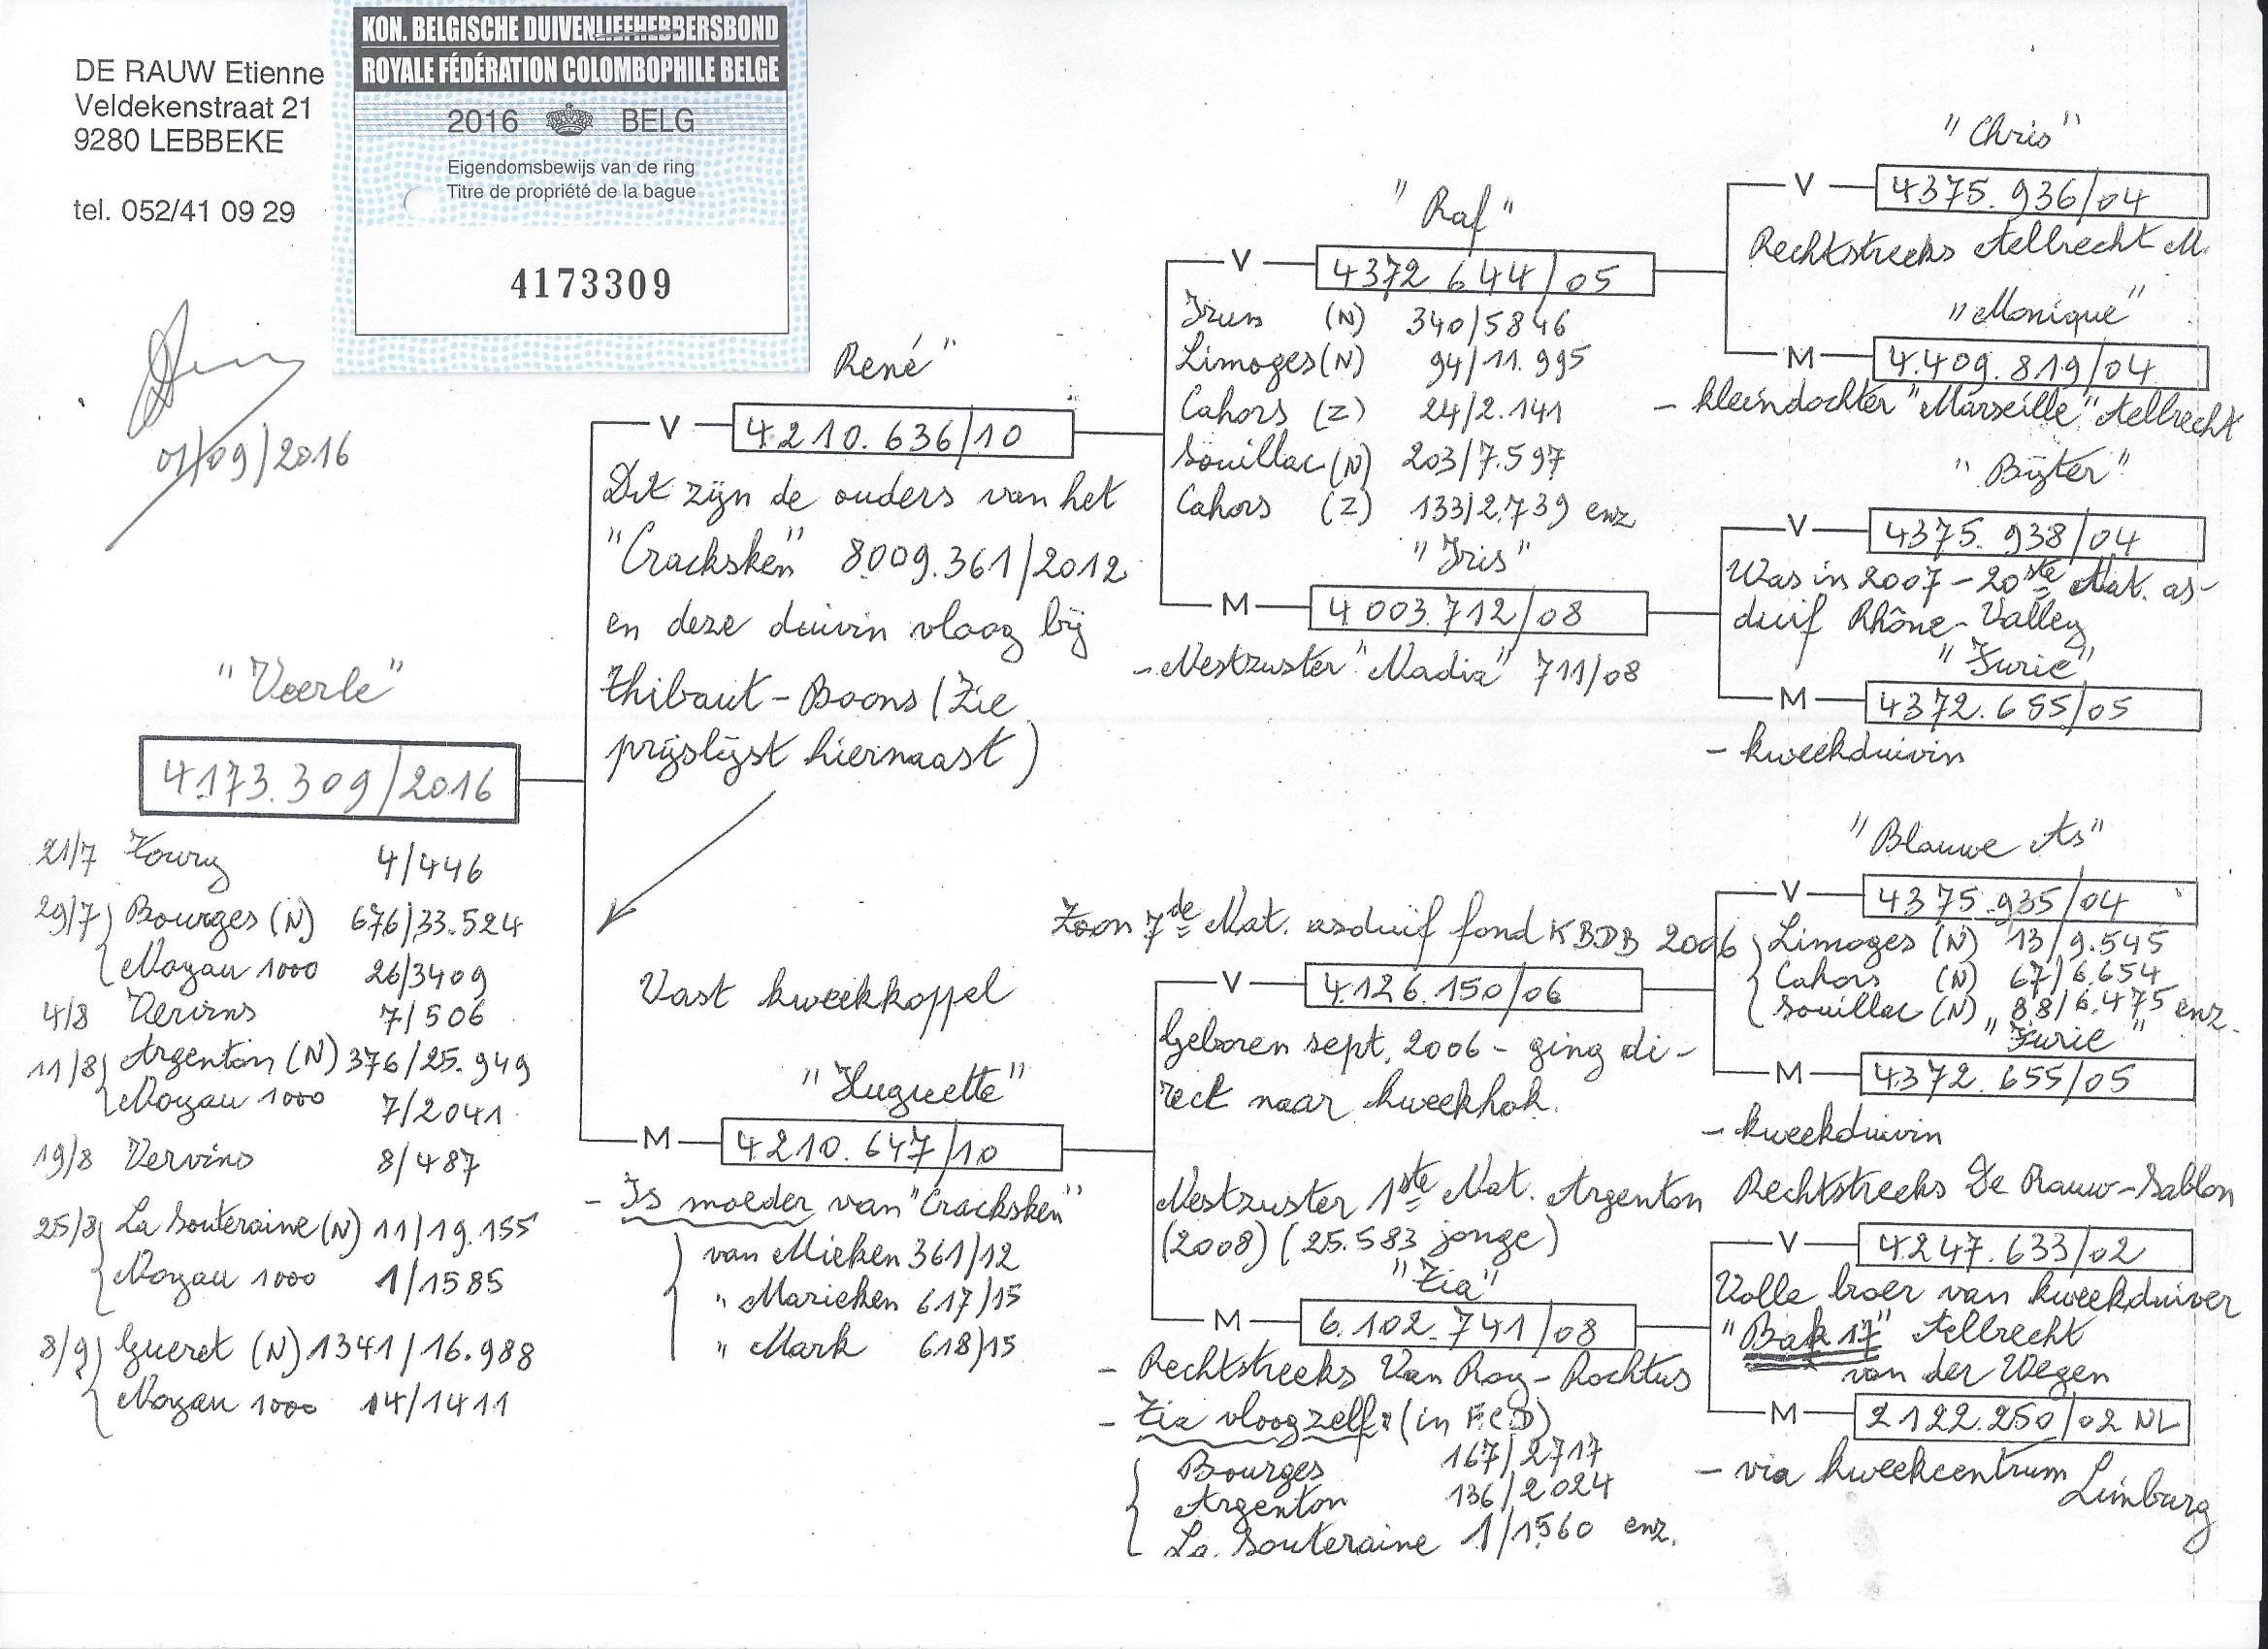 DE RAUW Etienne
Veldekenstraat 21
9280 LEBBEKE
tel. 052/41 09 29
KON. BELGISCHE DUIVENLIEFHEBBERSBOND
ROYALE FÉDÉRATION COLOMBOPHILE BELGE
2016 BELG
Eigendomsbewijs van de ring
Titre de propriété de la bague
4173309
01/09/2016
"Veerle"
4.173.309/2016
21/7 Toury 4/446
29/7 Bourges (N) 676/33.524
Noyau 1000 26/3409
4/8 Vervins 7/506
11/8 Argenton (N) 376/25.949
Noyau 1000 7/2041
19/8 Vervins 8/487
25/8 La Souteraine (N) 11/19.155
Noyau 1000 1/1585
8/9 Gueret (N) 1341/16.988
Noyau 1000 14/1411
René"
V 4.210.636/10
Dit zijn de ouders van het
"Cracksken" 8009.361/2012
en deze duivin vloog bij
Thibaut-Boons (Zie
prijslijst hiernaast)
Vast kweekkoppel
"Huguette"
M 4.210.647/10
- Is moeder van "Cracksken"
van Mieken 361/12
" Marieken 617/15
" Mark 618/15
"Raf"
V 4372.644/05
Irun (N) 340/5846
Limoges (N) 94/11.995
Cahors (Z) 24/2.141
Souillac (N) 203/7.597
Cahors (Z) 133/2.739 enz
"Iris"
M 4.003.712/08
- Nestzuster "Nadia" 711/08
Zoon 7de Nat. asduif fond KBDB 2006
V 4.126.150/06
Geboren sept. 2006 - ging di-
rect naar kweekhok.
Nestzuster 1ste Nat. Argenton
(2008) (25.583 jonge)
"Zia"
M 6.102.741/08
- Rechtstreeks Van Roy-Rochtus
- Zia vloog zelf: (in FCD)
Bourges 167/2717
Argenton 136/2024
La Souteraine 1/1560 enz.
"Chris"
V 4375.936/04
Rechtstreeks Aelbrecht M.
"Monique"
M 4.409.819/04
- kleindochter "Marseille" Aelbrecht
"Bijter"
V 4375.938/04
Was in 2007 - 20ste Nat. as-
duif Rhône-Valley
"Furie"
M 4372.655/05
- kweekduivin
"Blauwe As"
V 4375.935/04
Limoges (N) 13/9.545
Cahors (N) 67/6.654
Souillac (N) 88/6.475 enz.
"Furie"
M 4372.655/05
- kweekduivin
Rechtstreeks De Rauw-Sablon
V 4.247.633/02
Volle broer van kweekduiver
"Bak 17" Aelbrecht
van der Wegen
M 2122.250/02 NL
- via kweekcentrum
Limburg